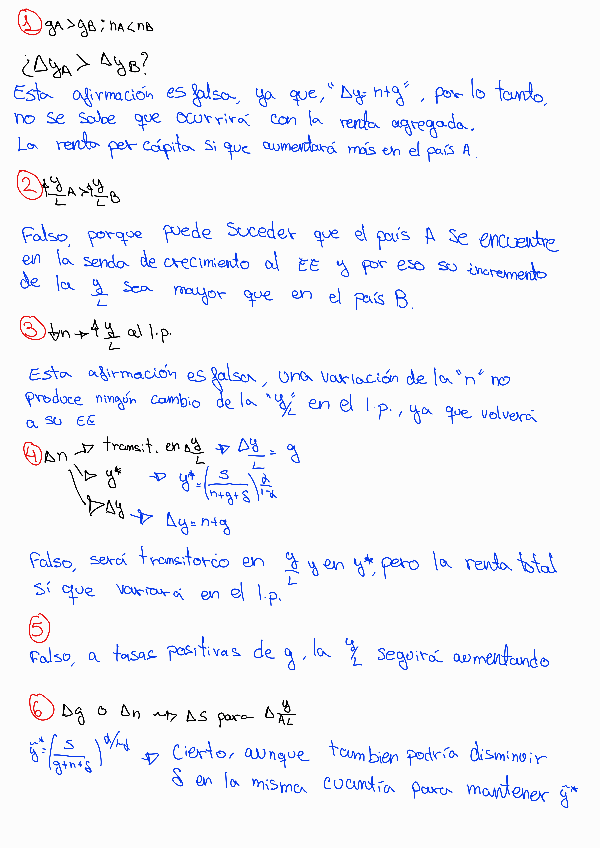 1 gA > gB ; nA < nB
¿ΔyA > ΔyB?
Esta afirmación es falsa, ya que, "Δy = n+g", por lo tanto,
no se sabe que ocurrirá con la renta agregada.
La renta per cápita si que aumentará más en el país A.
2 ↑y/L A > ↑y/L B
Falso, porque puede suceder que el país A se encuentre
en la senda de crecimiento al EE y por eso su incremento
de la y/L sea mayor que en el país B.
3 ↓n → ↑ y/L al l.p.
Esta afirmación es falsa, una variación de la "n" no
produce ningún cambio de la "y/L" en el l.p., ya que volverá
a su EE
4 Δn → transit. en Δy/L → Δy/L = g
→ y* → y* = (s/(n+g+δ))^α/1-α
→ Δy → Δy = n+g
Falso, será transitorio en y/L y en y*, pero la renta total
sí que variará en el l.p.
5
Falso, a tasas positivas de g, la y/L seguirá aumentando
6 Δg o Δn → Δs para Δ y/AL
ỹ* = (s/(g+n+δ))^α/1-α → Cierto, aunque tambien podría disminuir
δ en la misma cuantía para mantener ỹ*